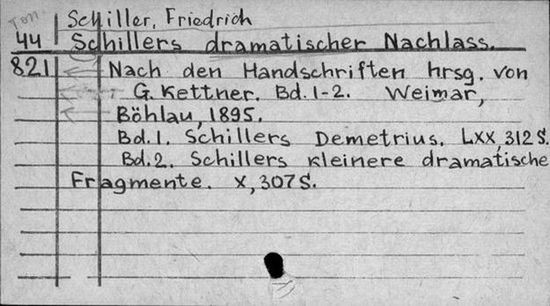 Ton
Schiller, Friedrich
44 Schillers dramatischer Nachlass.
821 Nach den Handschriften hrsg. von
G. Kettner. Bd. 1-2. Weimar,
Böhlau, 1895.
Bd. 1. Schillers Demetrius. LXX, 312 S.
Bd. 2. Schillers kleinere dramatische
Fragmente. X, 307 S.